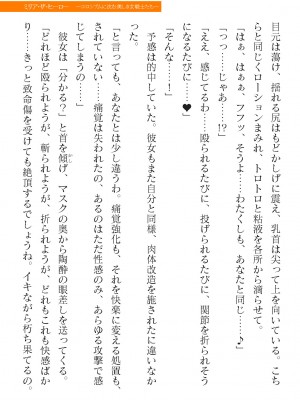 目元は蕩け、揺れる尻はもどかしげに震え、乳首は尖って上を向いている。こち
らと同じくローションまみれ、トロトロと粘液を各所から滴らせて。
「はぁ、はぁ、フフッ、そうよ……わたくしも、あなたと同じ……♪」
「っ……じゃあ……!?」
「ええ、感じてるわ……殴られるたびに、投げられるたびに、関節を折られそう
になるたびに……♥」
「そんな……！」
予感は的中していた。彼女もまた自分と同様、肉体改造を施されたに違いなか
った。
「と言っても、あなたとは少し違うわ。痛覚強化も、それを快楽に変える処置も、
されていない……痛覚は失われたの、あるのはただ性感のみ、あらゆる攻撃で感
じてしまうの……」
彼女は「分かる？」と首を傾げ、マスクの奥から陶酔の眼差しを送ってくる。
「どれほど殴られようが、斬られようが、折られようが、どれもこれも快感ばか
り……きっと致命傷を受けても絶頂するでしょうね。イキながら朽ち果てるの。